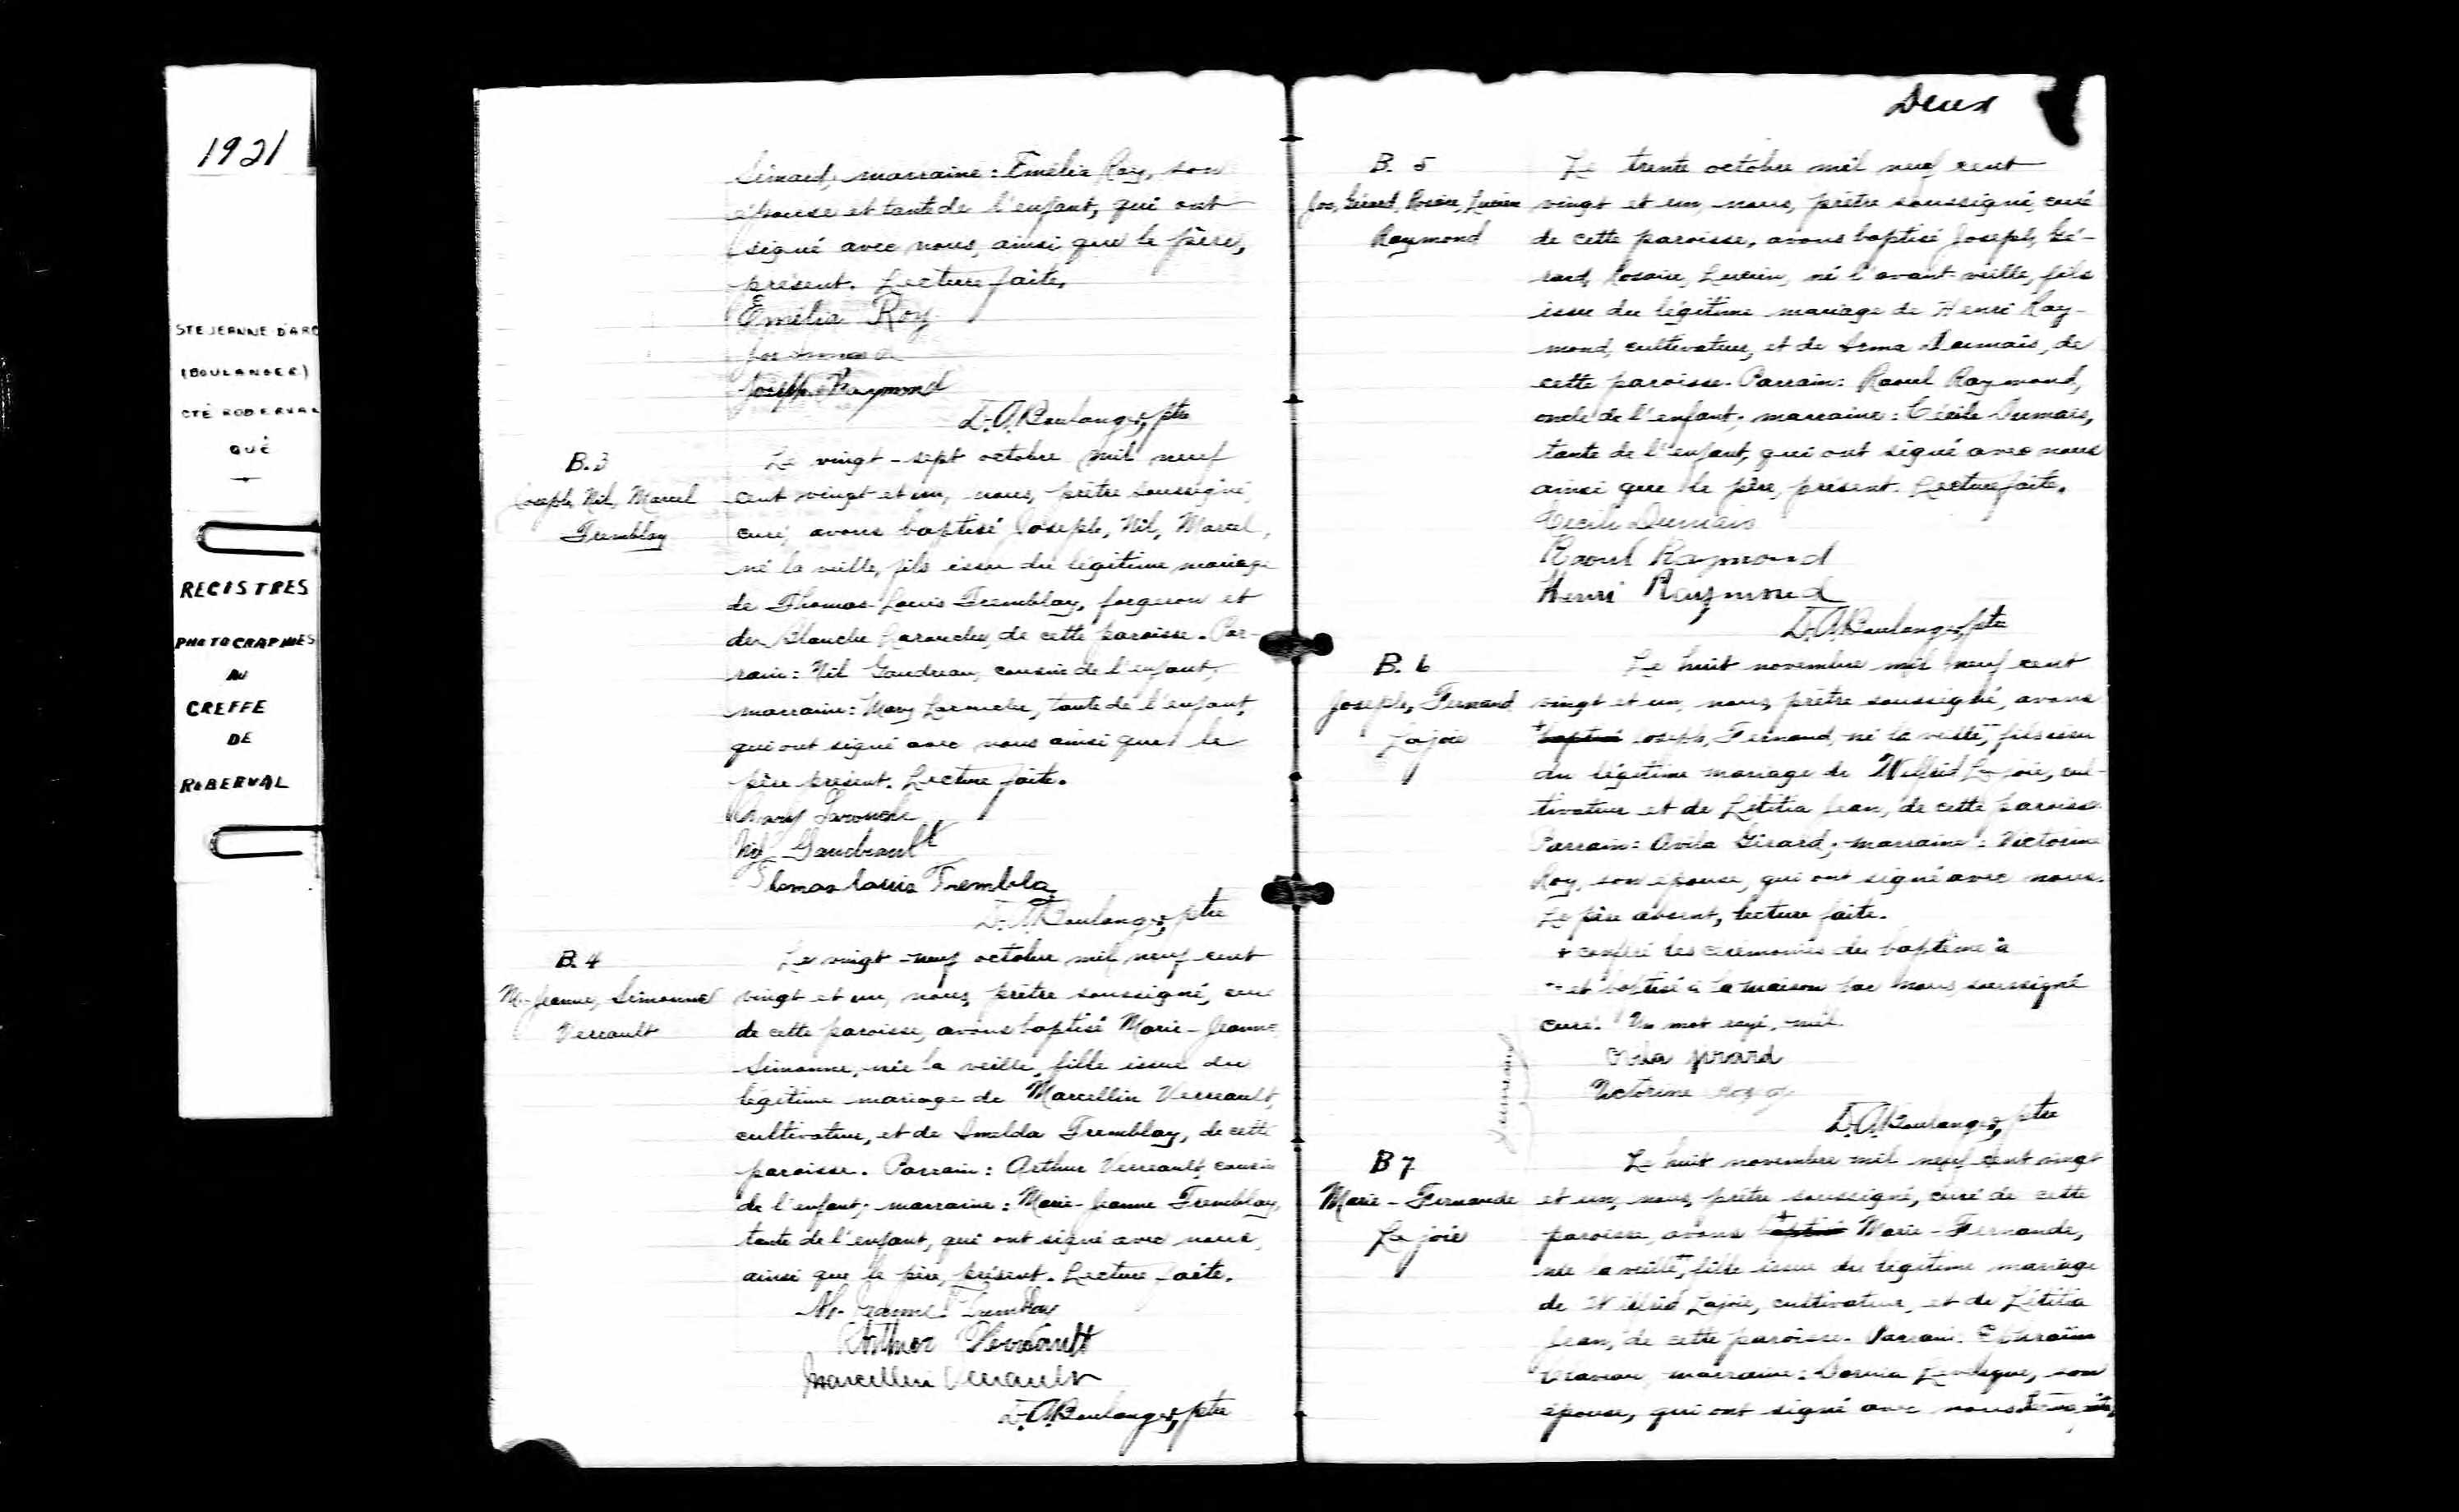 1921
STE JEANNE D'ARC
(BOULANGER)
CTÉ ROBERVAL
QUÉ
REGISTRES
PHOTOGRAPHIÉS
AU
GREFFE
DE
ROBERVAL
Simard, marraine: Emélia Roy, son
épouse et tante de l'enfant, qui ont
signé avec nous, ainsi que le père,
présent. Lecture faite.
Emélia Roy
Jos Simard
Joseph Raymond
D.A. Boulanger, ptre
B.3
Joseph, Nil, Marcel
Tremblay
Le vingt-sept octobre mil neuf
cent vingt et un, nous, prêtre soussigné,
curé, avons baptisé Joseph, Nil, Marcel,
né la veille, fils issu du légitime mariage
de Thomas-Louis Tremblay, forgeron et
de Blanche Larouche, de cette paroisse. Par-
rain: Nil Gaudreau, cousin de l'enfant,
marraine: Mary Larouche, tante de l'enfant,
qui ont signé avec nous ainsi que le
père présent. Lecture faite.
Mary Larouche
Nil Gaudreault
Thomas Louis Tremblay
D.A. Boulanger, ptre
B.4
M-Jeanne, Simonne
Verreault
Le vingt-neuf octobre mil neuf cent
vingt et un, nous, prêtre soussigné, curé
de cette paroisse, avons baptisé Marie-Jeanne
Simonne, née la veille, fille issue du
légitime mariage de Marcellin Verreault,
cultivateur, et de Imelda Tremblay, de cette
paroisse. Parrain: Arthur Verreault, cousin
de l'enfant; marraine: Marie-Jeanne Tremblay,
tante de l'enfant, qui ont signé avec nous,
ainsi que le père, présent. Lecture faite.
M. Jeanne Tremblay
Arthur Verreault
Marcellin Verreault
D.A. Boulanger, ptre
Deux
B. 5
Jos, Gérard, Rosaire, Lucien
Raymond
Le trente octobre mil neuf cent
vingt et un, nous, prêtre soussigné, curé
de cette paroisse, avons baptisé Joseph, Gé-
rard, Rosaire, Lucien, né l'avant-veille, fils
issu du légitime mariage de Henri Ray-
mond, cultivateur, et de Irma Dumais, de
cette paroisse. Parrain: Raoul Raymond,
oncle de l'enfant; marraine: Cécile Dumais,
tante de l'enfant, qui ont signé avec nous
ainsi que le père, présent. Lecture faite.
Cécile Dumais
Raoul Raymond
Henri Raymond
D.A. Boulanger, ptre
B. 6
Joseph, Fernand
Lajoie
Le huit novembre mil neuf cent
vingt et un, nous, prêtre soussigné, avons
+ baptisé Joseph, Fernand, né la veille, fils issu
du légitime mariage de Wilfrid Lajoie, cul-
tivateur et de Létitia Jean, de cette paroisse.
Parrain: Avila Girard; marraine: Victorine
Roy, son épouse, qui ont signé avec nous.
Le père absent, lecture faite.
+ conféré les cérémonies du baptême à
-- et baptisé à la maison par nous, soussigné
curé. Un mot rayé, nul.
Avila Girard
Victorine Roy
D.A. Boulanger, ptre
Jumeaux
B 7
Marie-Fernande
Lajoie
Le huit novembre mil neuf cent vingt
et un, nous, prêtre soussigné, curé de cette
paroisse, avons + baptisé Marie-Fernande,
née la veille, fille issue du légitime mariage
de Wilfrid Lajoie, cultivateur, et de Létitia
Jean, de cette paroisse. Parrain: Ephraïm
marraine: Levesque, son
épouse, qui ont signé avec nous